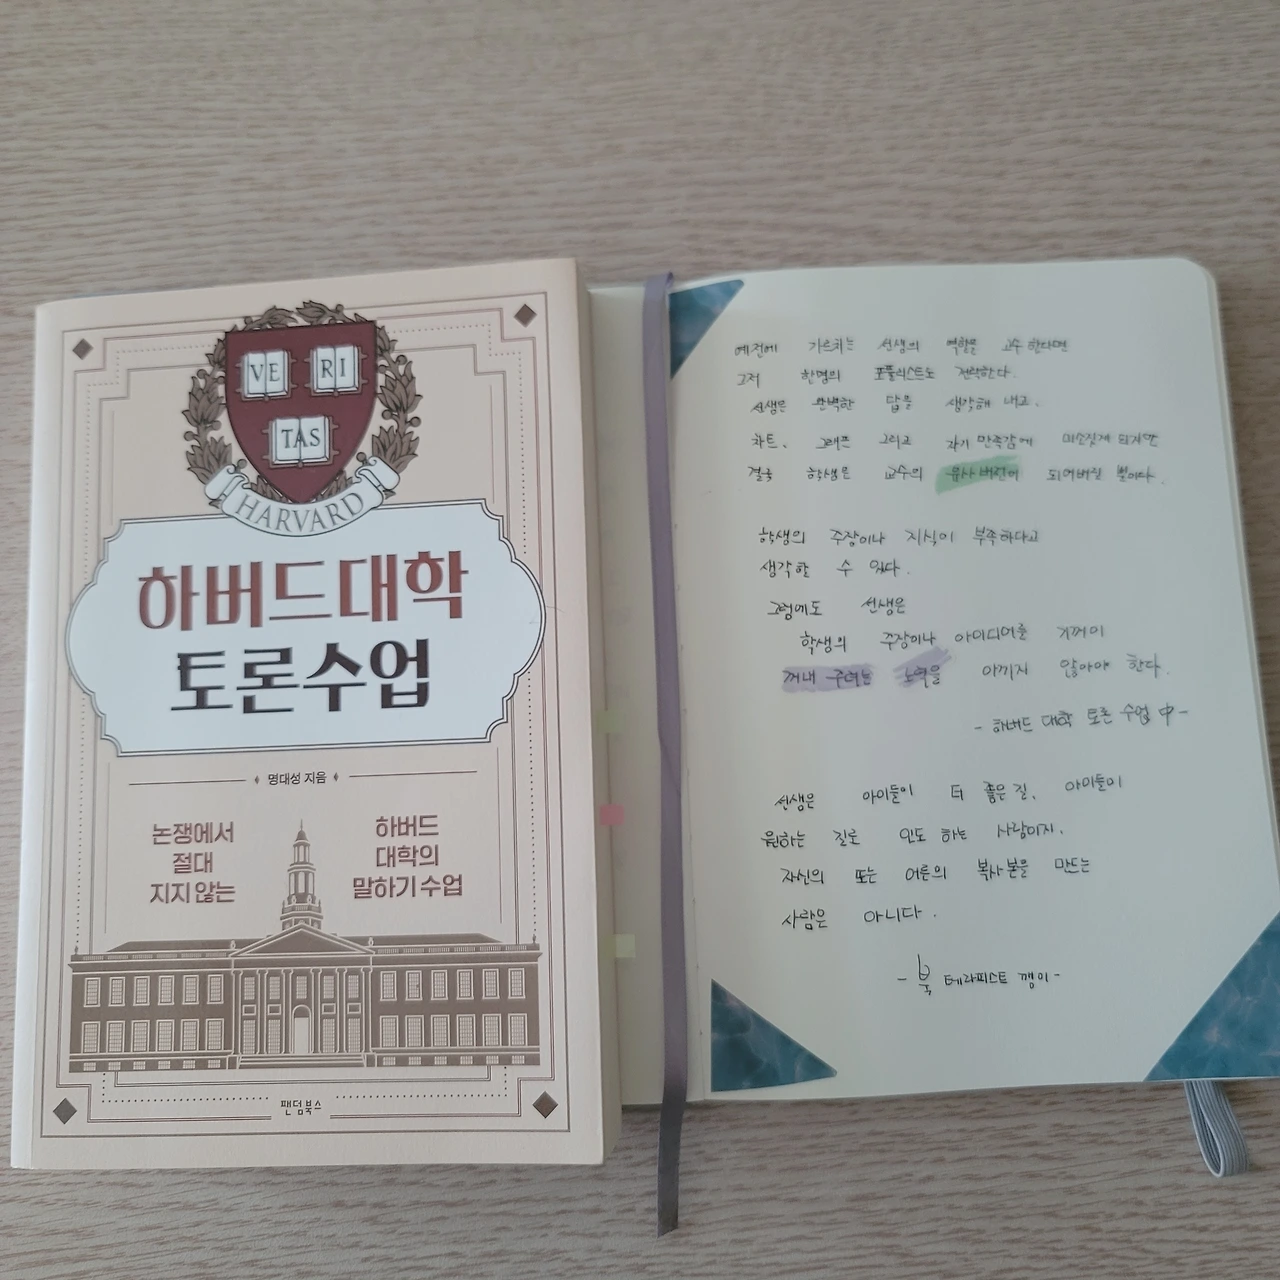 VE RI
TAS
HARVARD
하버드대학
토론수업
명대성 지음
논쟁에서
절대
지지 않는
하버드
대학의
말하기 수업
팬덤북스
예전에 가르치는 선생의 역할을 고수한다면
그저 한명의 포퓰리스트로 전락한다.
선생은 완벽한 답을 생각해 내고.
차트, 그래프 그리고 자기 만족감에 미소짓게 되지만
결국 학생은 교수의 유사버전이 되어버릴 뿐이다.
학생의 주장이나 지식이 부족하다고
생각할 수 있다.
그럼에도 선생은
학생의 주장이나 아이디어를 기꺼이
꺼내 주려는 노력을 아끼지 않아야 한다.
- 하버드 대학 토론 수업 中 -
선생은 아이들이 더 좋은 길, 아이들이
원하는 길로 인도 하는 사람이지.
자신의 또는 어른의 복사본을 만드는
사람은 아니다.
- 북 테라피스트 깽이 -